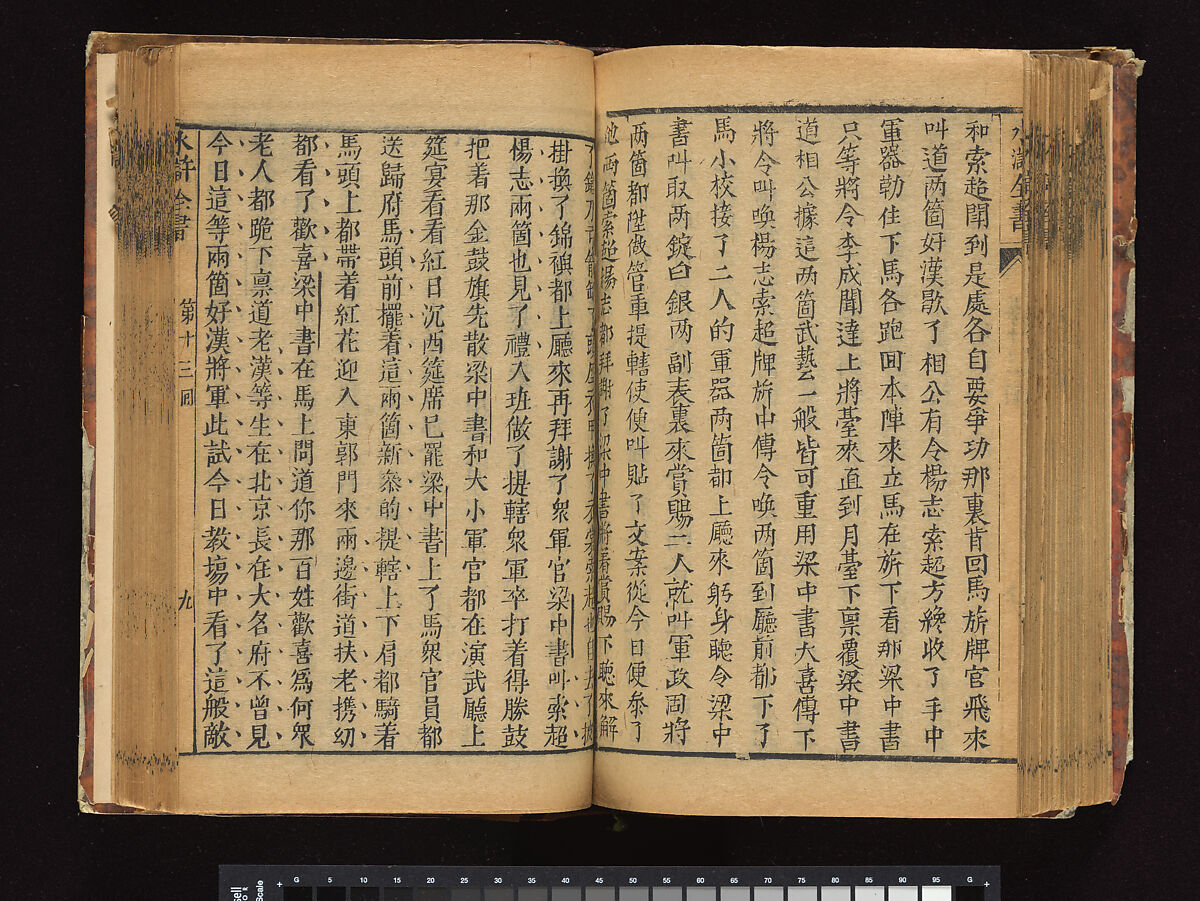 水滸全書
和索超聞到是處各自要爭功那裏肯回馬旂牌官飛來
叫道两箇好漢歇了相公有令楊志索超方纔收了手中
軍器勒住下馬各跑回本陣來立馬在旂下看那梁中書
只等將令李成聞達上將臺來直到月臺下禀覆梁中書
道相公據這两箇武藝一般皆可重用梁中書大喜傳下
將令叫喚楊志索超牌旂中傳令喚两箇到廳前都下了
馬小校接了二人的軍器两箇都上廳來躬身聽令梁中
書叫取两錠白銀两副表裏來賞賜二人就叫軍政司將
两箇都陞做管軍提轄使便叫貼了文案從今日便叅了
他两箇索超楊志都拜謝了梁中書將着賞賜下廳來解
掛換了錦襖都上廳來再拜謝了衆軍官梁中書叫索超
楊志兩箇也見了禮入班做了提轄衆軍卒打着得勝鼓
把着那金鼓旗先散梁中書和大小軍官都在演武廳上
筵宴看看紅日沉西筵席已罷梁中書上了馬衆官員都
送歸府馬頭前擺着這兩箇新叅的提轄上下肩都騎着
馬頭上都帶着紅花迎入東郭門來兩邊街道扶老携幼
都看了歡喜梁中書在馬上問道你那百姓歡喜爲何衆
老人都跪下禀道老漢等生在北京長在大名府不曾見
今日這等兩箇好漢將軍此試今日教塲中看了這般敵
水滸全書 第十三囘 九
G 5 10 15 20 25 30 35 40 45 50 55 60 65 70 75 80 85 90 95 G